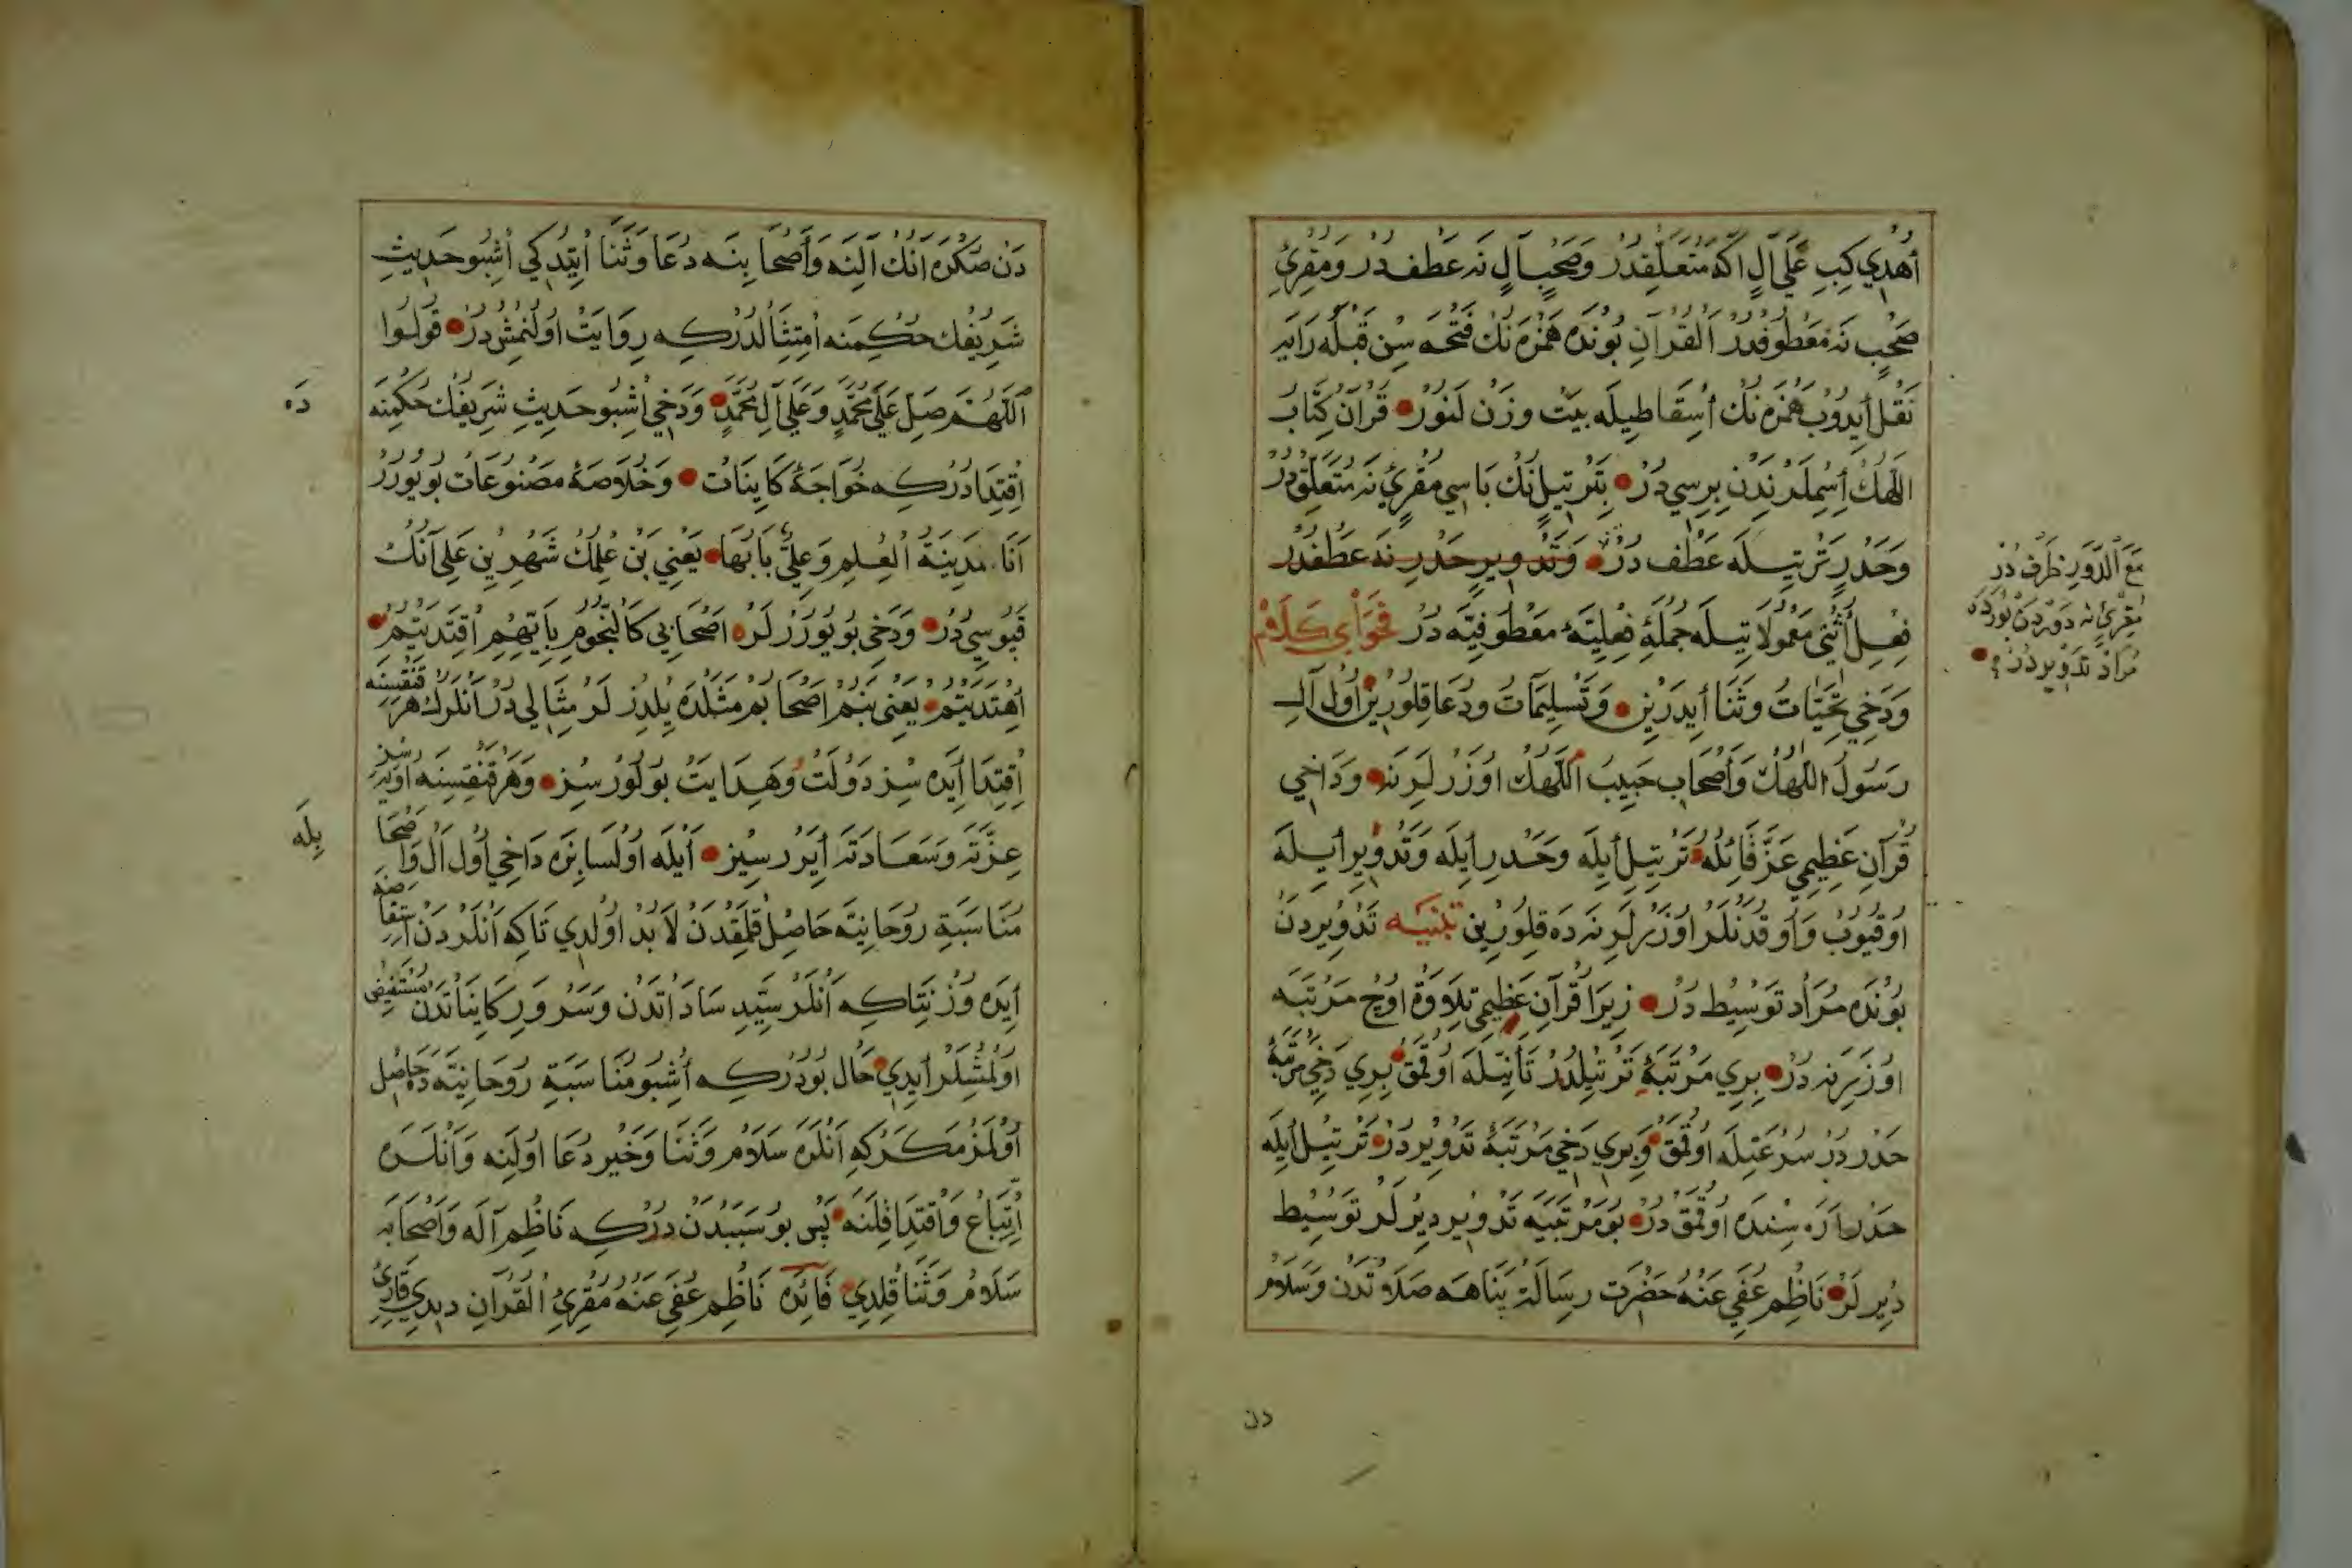 أهدي كبب علي آل اكه متعلقدر وصحب آل نه عطفدر ومقرئ
صحب نه معطوفدر القرآن بونده همزه نك فتحه سن قبله رايه
نقل ايدوب همزه نك اسقاطيله بيت وزن لنور قرآن كتاب
اللهك اسملرندن برسي در بترتيل نك باسي مقرئ نه متعلق در
وحدر ترتيله عطف در وتدوير حدر نه عطفدر
فعل أثني معمولاتيله جملهٔ فعليهٔ معطوفيه در فحواي كلام
ودخي تحيات وثنا أيدرين وتسليمات ودعا قلورين اول آل
رسول اللهك وأصحاب حبيب اللهك اوزرلرنه وداخي
قرآن عظيمي عز قائله ترتيل أيله وحدر أيله وتدوير أيله
اوقيوب واوقدنلر اوزرلرنه ده قلورين تنبيه تدويردن
بونده مراد توسيط در زيرا قرآن عظيمي تلاوة اوچ مرتبه
اوزرينه در بري مرتبهٔ ترتيلدر تأنيله اوقمق بري دخي مرتبهٔ
حدر در سرعتيله اوقمق وبري دخي مرتبهٔ تدوير در ترتيل أيله
حدر اره سنده اوقمق در بو مرتبيه تدوير ديرلر توسيط
ديرلر ناظم عفي عنه حضرت رسالة پناهه صلاوتدن وسلام
مع الدور ظرف در
مقرئ نه دوردن بورده
مراد تدويردر
دن
دن صكره انك آلنه وأصحابنه دعا وثنا أيتدي كي أشبو حديث
شريفك حكمنه امتثالدركه روايت اولنمش در قولوا
اللهم صل علي محمد وعلي آل محمد ودخي أشبو حديث شريفك حكمنه
اقتدا دركه خواجهٔ كاينات وخلاصهٔ مصنوعات بويورر
أنا مدينة العلم وعلي بابها يعني بن علمك شهرين علي آنك
قپوسي در ودخي بويوررلر اصحابي كالنجوم بأيهم اقتديتم
اهتديتم يعني بنم اصحابم مثلده يلدزلر مثالي در انلرك هر قنغيسنه
اقتدا أيده سز دولت وهدايت بولورسز وهر قنغيسنه اويرسز
عزته وسعادته أيررسيز أيله اولسا بزه داخي اول آل وأصحا
بيله
مناسبة روحانيه حاصل قلمقدن لابد اولدي تاكه انلردن استفاضه
أيده وز نتاكه انلر سيد ساداتدن وسرور كايناتدن مستفيض
اولمشلر أيدي حال بودركه أشبو مناسبة روحانيه ده حاصل
اولمز مكركه انلره سلام وثنا وخير دعا اولنه وانلره
اتباع واقتدا قلنه پس بو سببدن دركه ناظم آله وأصحابه
سلام وثنا قلدي فائده ناظم عفي عنه مقرئ القرآن ديدي قارئ
ده